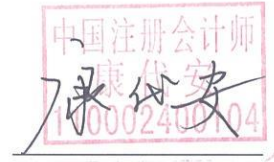 中国注册会计师
康代安
110002400104
康代安